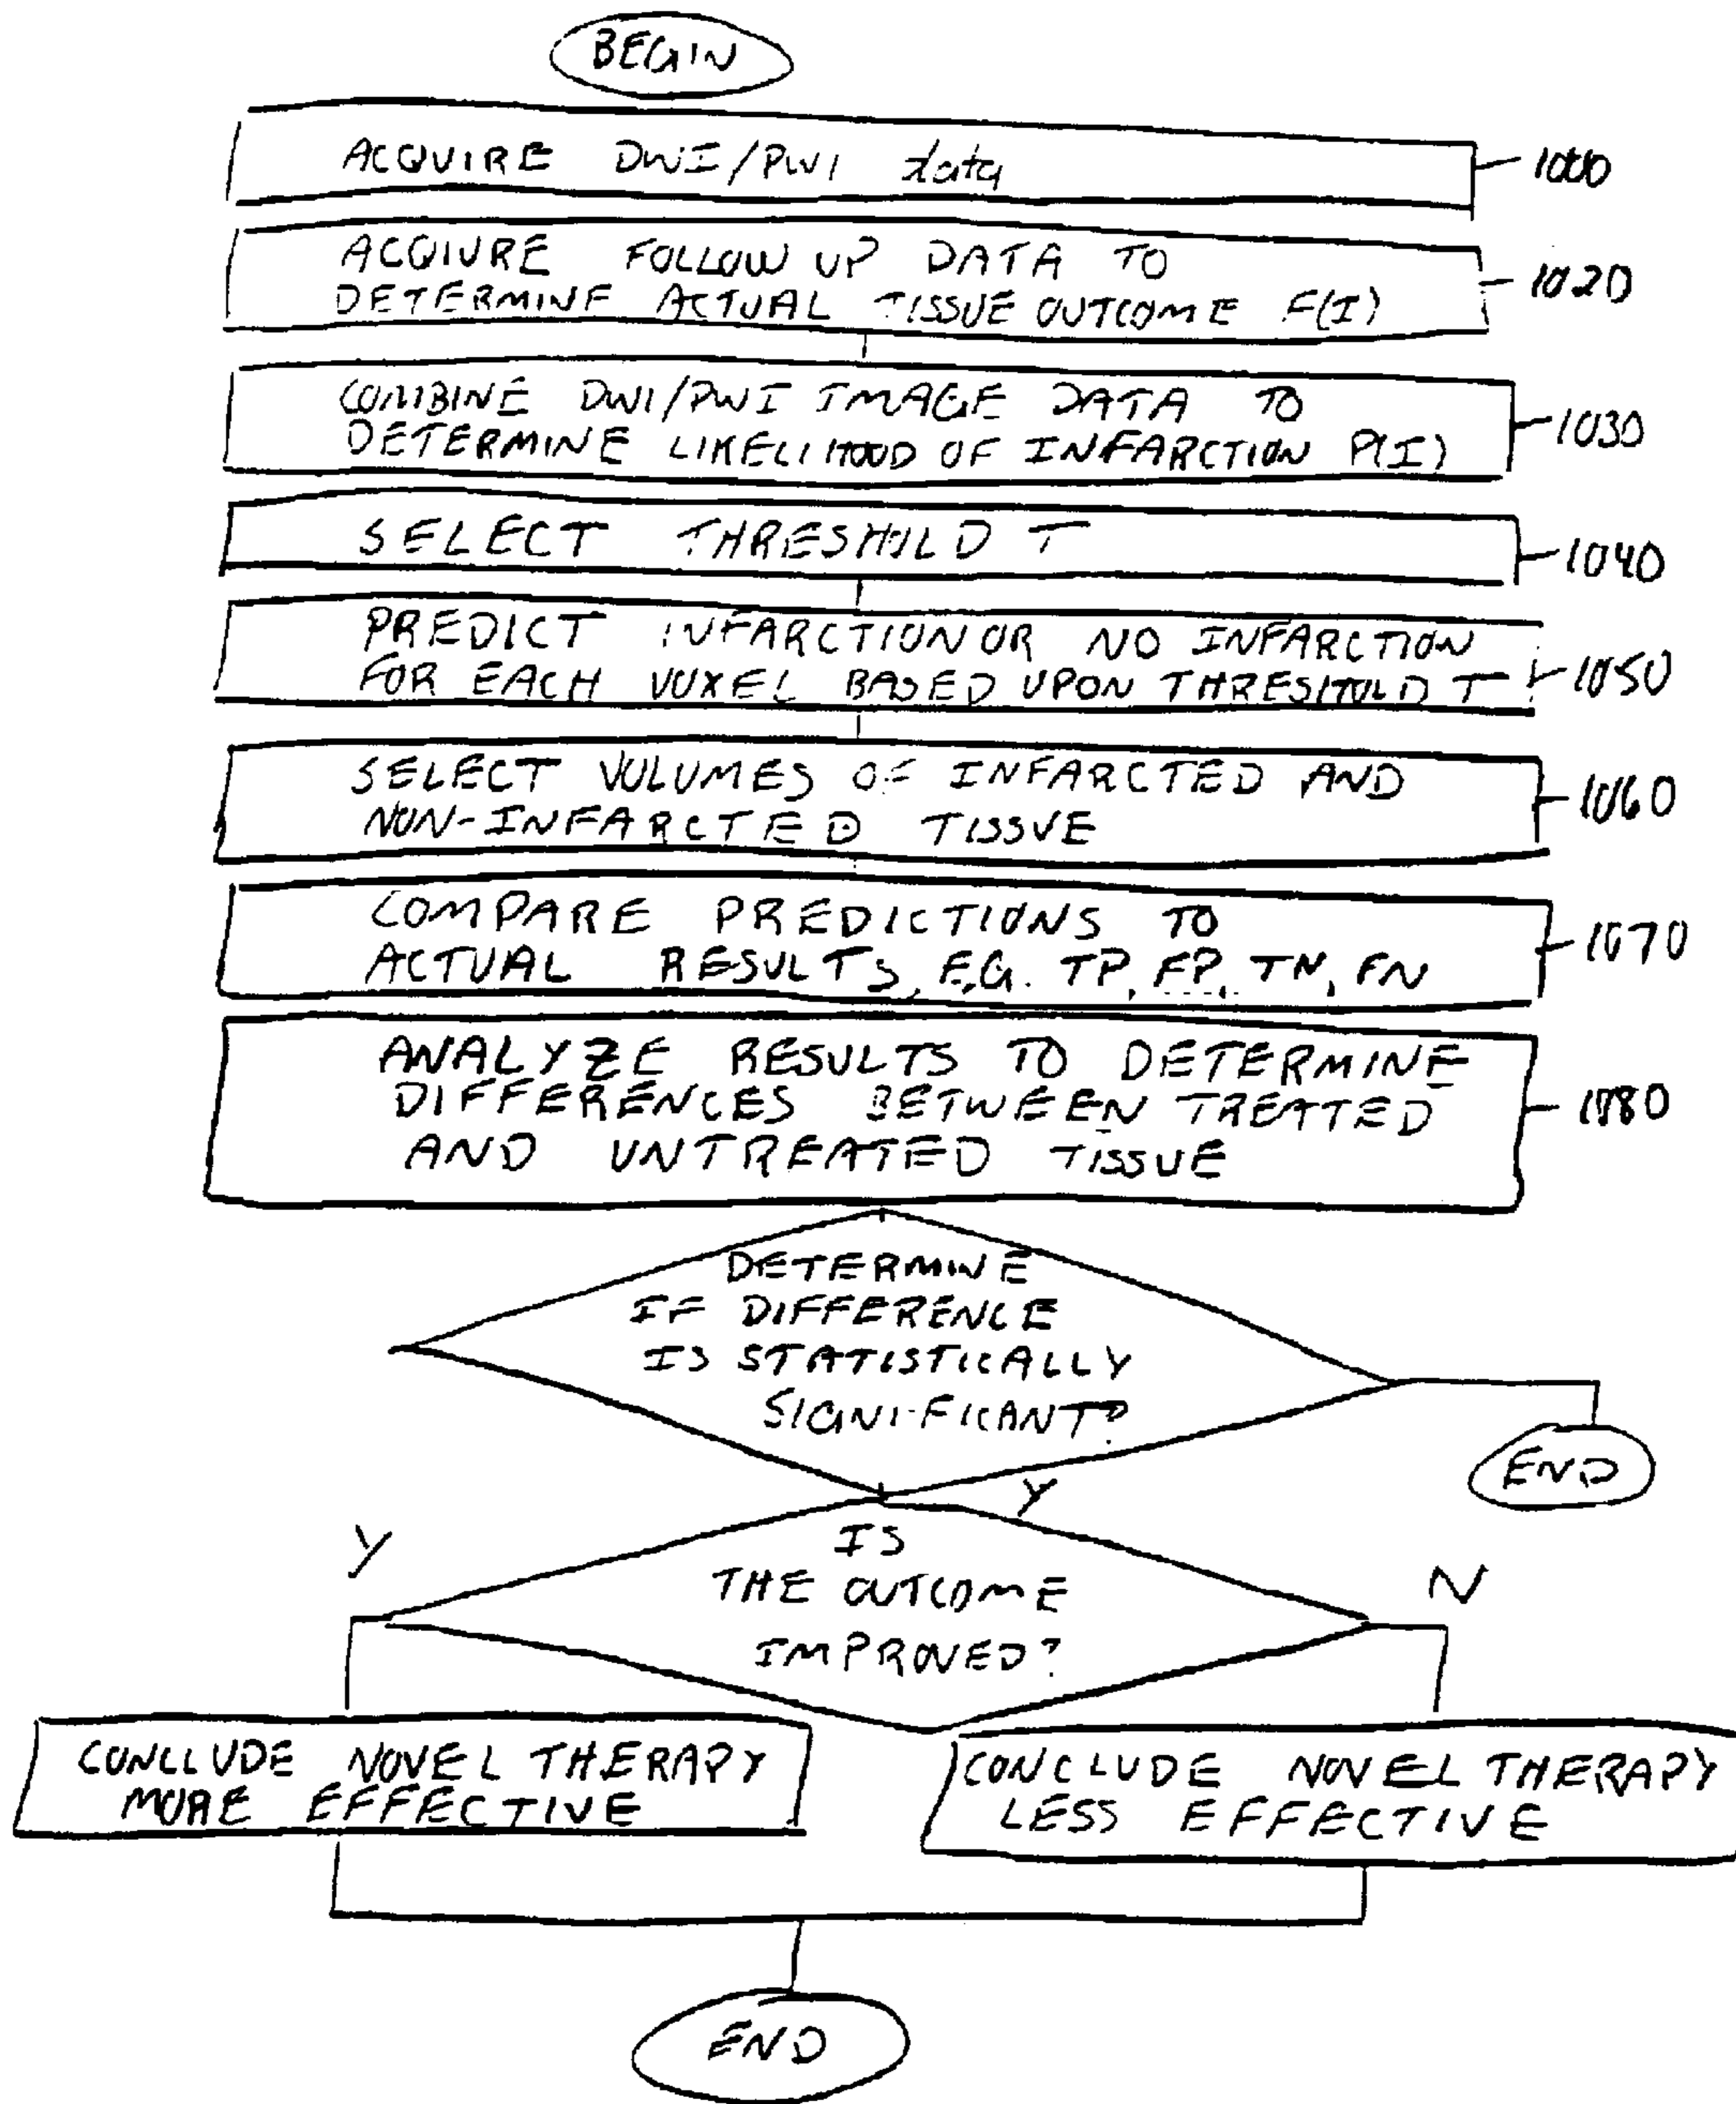 BEGIN
ACQUIRE DWI/PWI data
1000
ACQIURE FOLLOW UP DATA TO
DETERMINE ACTUAL TISSUE OUTCOME F(I)
1020
COMBINE DWI/PWI IMAGE DATA TO
DETERMINE LIKELIHOOD OF INFARCTION P(I)
1030
SELECT THRESHOLD T
1040
PREDICT INFARCTION OR NO INFARCTION
FOR EACH VOXEL BASED UPON THRESHOLD T
1050
SELECT VOLUMES OF INFARCTED AND
NON-INFARCTED TISSUE
1060
COMPARE PREDICTIONS TO
ACTUAL RESULTS, E.G. TP, FP, TN, FN
1070
ANALYZE RESULTS TO DETERMINE
DIFFERENCES BETWEEN TREATED
AND UNTREATED TISSUE
1080
DETERMINE
IF DIFFERENCE
IS STATISTICALLY
SIGNIFICANT?
END
Y
Y
IS
THE OUTCOME
IMPROVED?
N
CONCLUDE NOVEL THERAPY
MORE EFFECTIVE
CONCLUDE NOVEL THERAPY
LESS EFFECTIVE
END